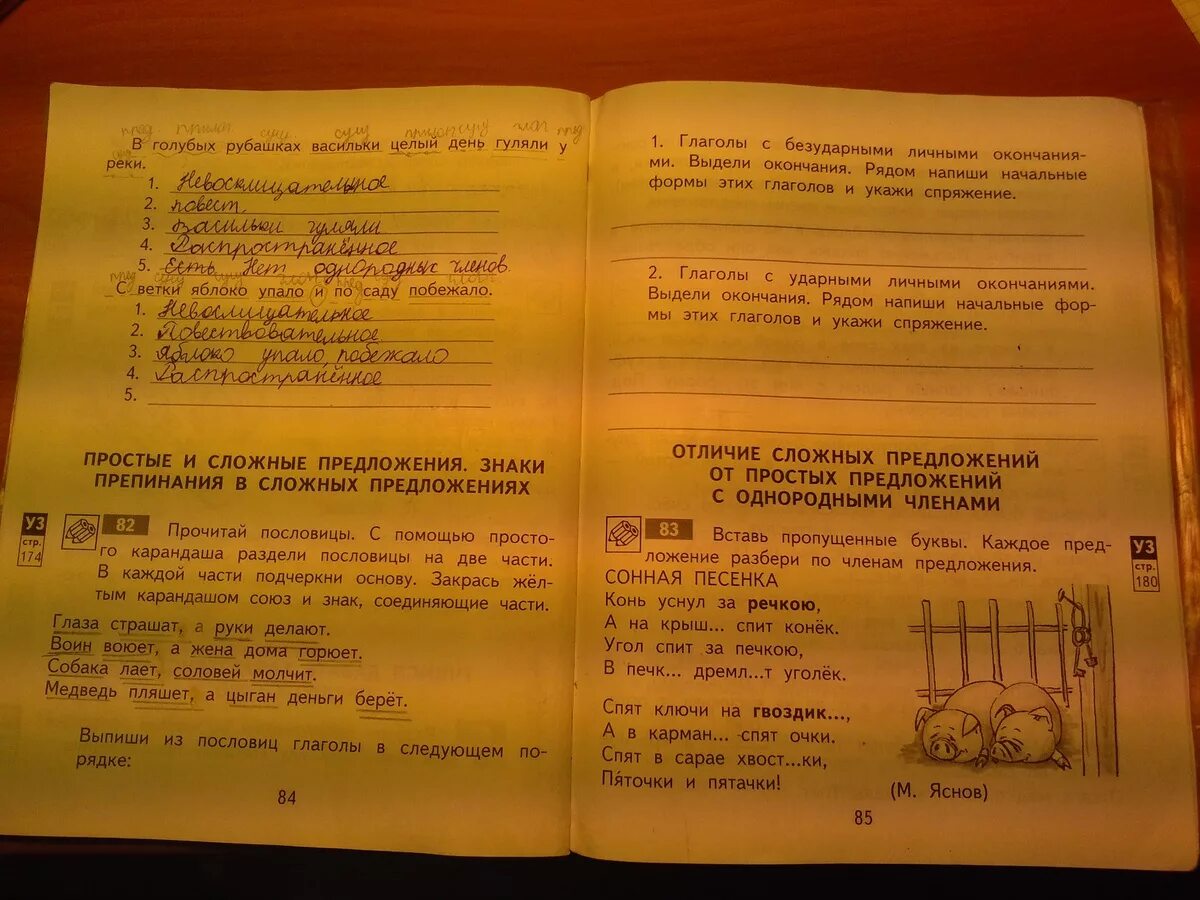 В голубых рубашках васильки целый день гуляли у
реки.
1. Невосклицательное
2. повест.
3. Васильки гуляли
4. Распространённое
5. Есть Нет однородных членов.
С ветки яблоко упало и по саду побежало.
1. Невослицательное
2. Повествовательное
3. Яблоко упало, побежало
4. Распространённое
5.
ПРОСТЫЕ И СЛОЖНЫЕ ПРЕДЛОЖЕНИЯ. ЗНАКИ
ПРЕПИНАНИЯ В СЛОЖНЫХ ПРЕДЛОЖЕНИЯХ
УЗ
стр.
174
82 Прочитай пословицы. С помощью просто-
го карандаша раздели пословицы на две части.
В каждой части подчеркни основу. Закрась жёл-
тым карандашом союз и знак, соединяющие части.
Глаза страшат, а руки делают.
Воин воюет, а жена дома горюет.
Собака лает, соловей молчит.
Медведь пляшет, а цыган деньги берёт.
Выпиши из пословиц глаголы в следующем по-
рядке:
84
1. Глаголы с безударными личными окончания-
ми. Выдели окончания. Рядом напиши начальные
формы этих глаголов и укажи спряжение.
2. Глаголы с ударными личными окончаниями.
Выдели окончания. Рядом напиши начальные фор-
мы этих глаголов и укажи спряжение.
ОТЛИЧИЕ СЛОЖНЫХ ПРЕДЛОЖЕНИЙ
ОТ ПРОСТЫХ ПРЕДЛОЖЕНИЙ
С ОДНОРОДНЫМИ ЧЛЕНАМИ
83 Вставь пропущенные буквы. Каждое пред-
ложение разбери по членам предложения.
УЗ
стр.
180
СОННАЯ ПЕСЕНКА
Конь уснул за речкою,
А на крыш... спит конёк.
Угол спит за печкою,
В печк... дремл...т уголёк.
Спят ключи на гвоздик...,
А в карман... спят очки.
Спят в сарае хвост...ки,
Пяточки и пятачки!
(М. Яснов)
85